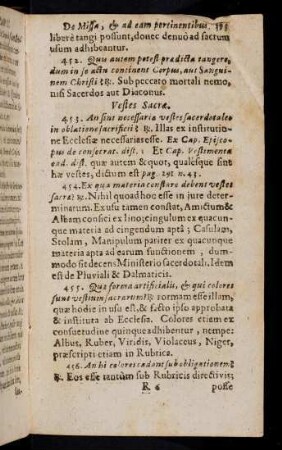 De Missa, & ad eam pertinentibus. 193
liberè tangi possunt, donec denuò ad sactum
usum adhibeantur.
452. Quis autem potest prædicta tangere,
dum in se actu continent Corpus, aut Sangui-
nem Christi? ℞. Sub peccato mortali nemo,
nisi Sacerdos aut Diaconus.
Vestes Sacræ.
453. An sint necessaria vestes sacerdotales
in oblatione sacrificii? ℞. Illas ex institutione
Ecclesiæ necessarias esse. Ex Cap. Episco-
pus de consecrat. dist. 1. Et Cap. Vestimenta
ead. dist. quæ autem & quot, qualesque sint
hæ vestes, dictum est pag. 191 n. 43.
454. Ex qua materia constare debent vestes
sacræ? ℞. Nihil quoad hoc esse in jure deter-
minatum. Ex usu tamen constat, Amictum &
Albam confici ex lino; cingulum ex quacun-
que materia ad cingendum aptâ; Casulam,
Stolam, Manipulum pariter ex quacunque
materia apta ad earum functionem, dum-
modo sit decens Ministerio sacerdotali. Idem
est de Pluviali & Dalmaticis.
455. Quæ forma artificialis, & qui colores
sunt vestium sacrarum? ℞. formam esse illam,
quæ hodie in usu est, & facto ipso approbata
& instituta ab Ecclesia. Colores etiam ex
consuetudine quinque adhibentur, nempe:
Albus, Ruber, Viridis, Violaceus, Niger,
præscripti etiam in Rubrica.
456. An hi colores cadant sub obligationem?
℞. Eos esse tantùm sub Rubricis directivis;
R 6 posse